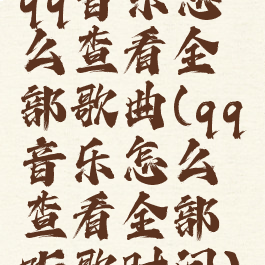 qq音乐怎
么查看全
部歌曲(qq
音乐怎么
查看全部
听歌时间)